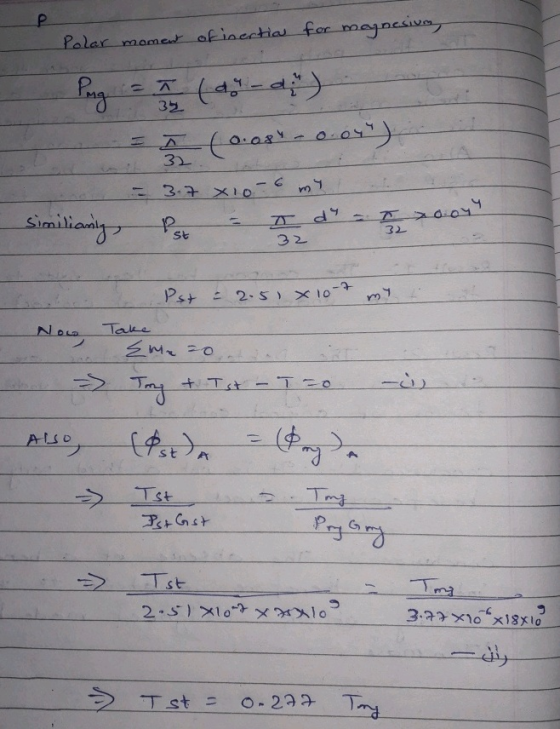 P
Polar moment of inertia for magnesium,
P_mg = π/32 (d_o⁴ - d_i⁴)
= π/32 (0.08⁴ - 0.04⁴)
= 3.7 × 10⁻⁶ m⁴
Similianly, P_st = π/32 d⁴ = π/32 × 0.04⁴
P_st = 2.51 × 10⁻⁷ m⁴
Now, Take
ΣM_x = 0
⇒ T_mg + T_st - T = 0 —(i)
Also, (ϕ_st)_A = (ϕ_mg)_A
⇒ T_st / P_st G_st = T_mg / P_mg G_mg
⇒ T_st / 2.51 × 10⁻⁷ × 75 × 10⁹ = T_mg / 3.77 × 10⁻⁶ × 18 × 10⁹
—(ii)
⇒ T_st = 0.277 T_mg